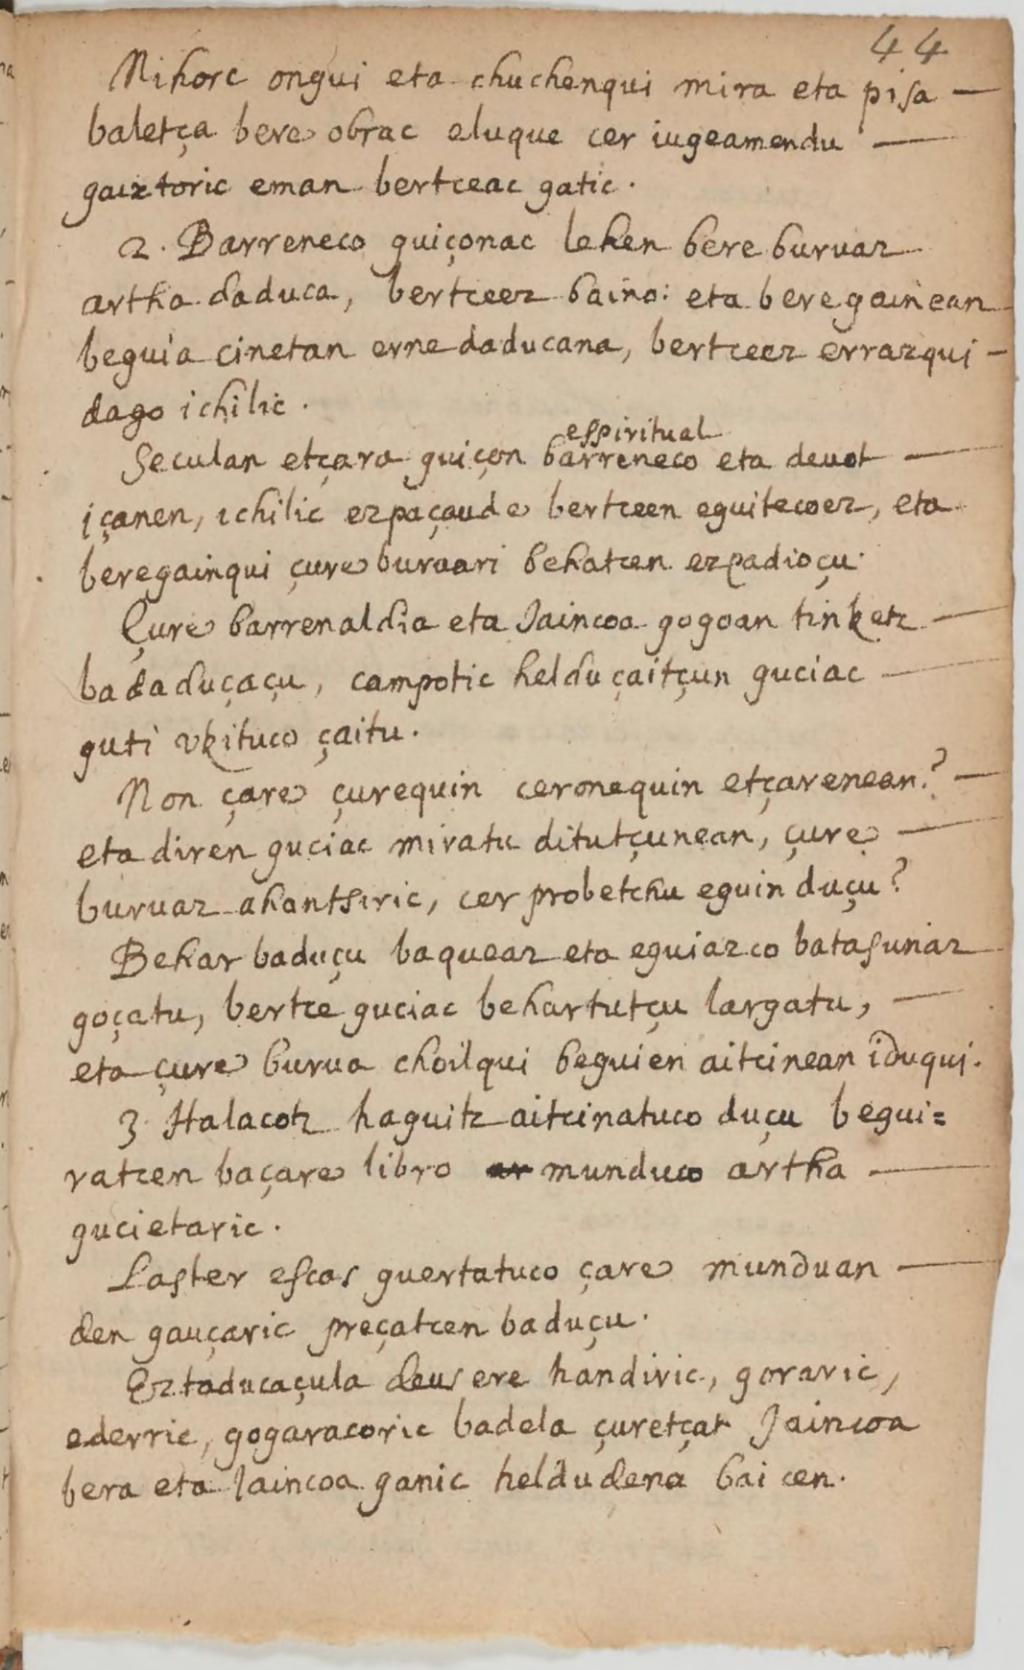 44
Nihorc ongui eta chuchenqui mira eta pisa —
baletça bere obrac eluque cer iugeamendu —
gaiztoric eman bertceac gatic.
2. Barreneco guiçonac lehen bere buruaz
artha daduca, bertceez baino: eta bere gainean
beguia cinetan erne daducana, bertceez errazqui —
dago ichilic.
espiritual
Seculan etçara guiçon barreneco eta deuot —
içanen, ichilic ezpaçaude bertceen eguitecoez, eta
beregainqui çure buruari behatcen ezpadioçu.
Çure barrenaldia eta Jaincoa gogoan tinketz —
badaduçaçu, campotic heldu çaitçun guciac —
guti vkituco çaitu.
Non çare çurequin ceronequin etçarenean? —
eta diren guciac miratu ditutçunean, çure —
buruaz ahantsiric, cer probetchu eguin duçu?
Behar baduçu baqueaz eta eguiazco batasunaz
goçatu, bertce guciac behartutçu largatu, —
eta çure burua choilqui beguien aitcinean iduqui.
3. Halacotz haguitz aitcinatuco duçu begui=
ratcen baçare libro munduco artha —
gucietaric.
Laster escas guertatuco çare munduan —
den gauçaric preçatcen baduçu.
Eztaducaçula deus ere handiric, goraric,
ederric, gogaracoric badela çuretçat Jaincoa
bera eta Jaincoa ganic heldu dena baicen.